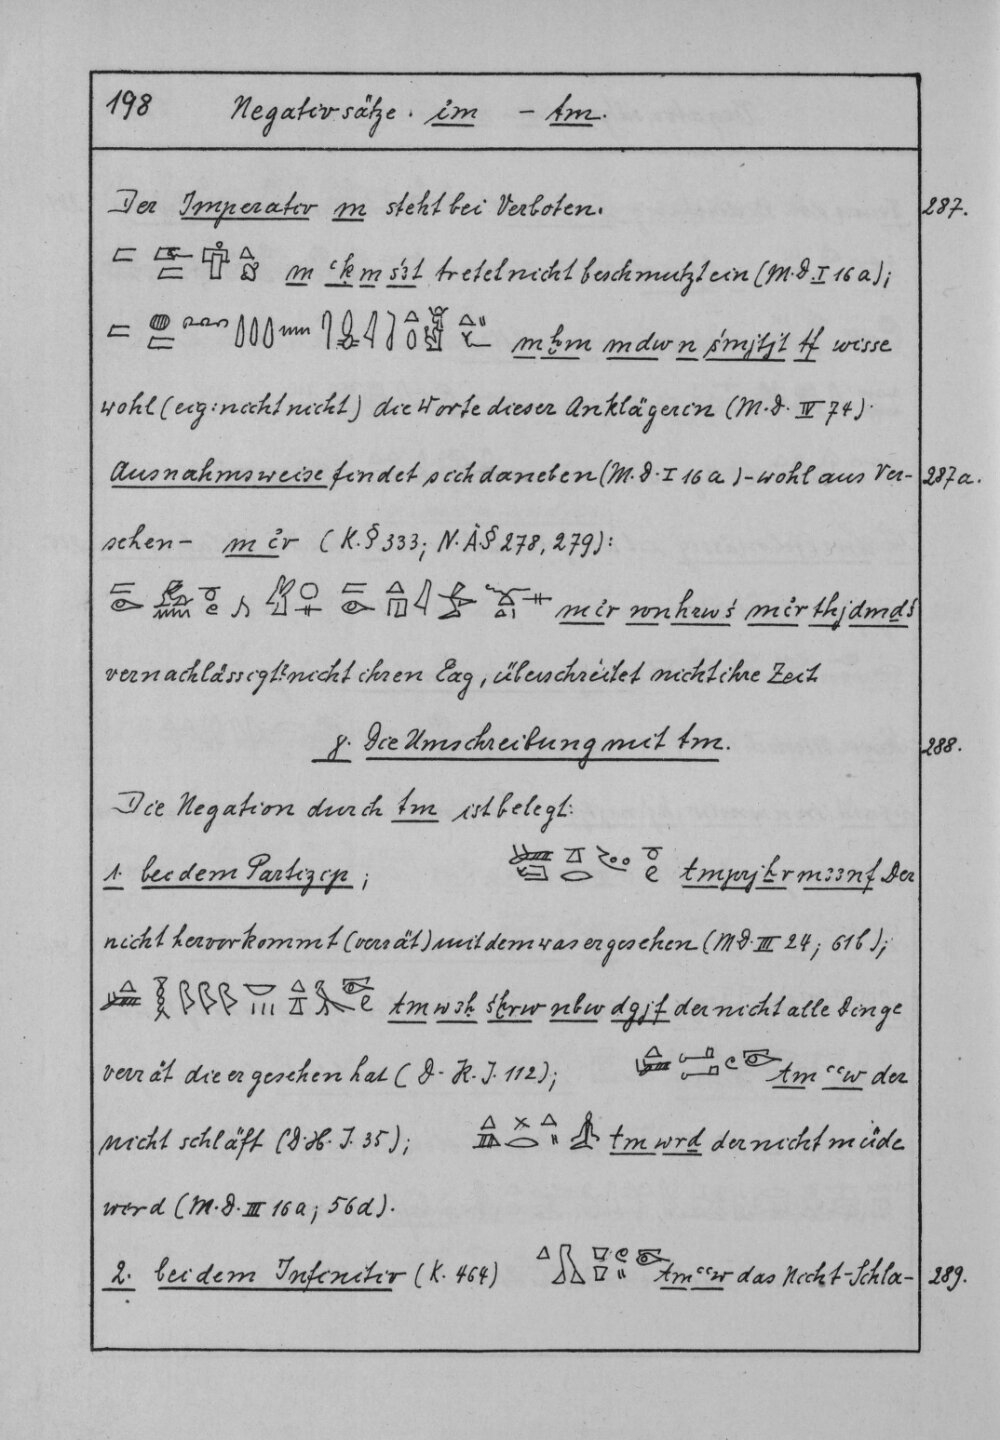 198 Negativsätze. im – tm.
Der Imperativ m steht bei Verboten. 287.
m ꜥḳ m śꜣt tretet nicht beschmutzt ein (M.D. I 16a);
m ḫm mdw n śmjtjt tf wisse
wohl (eig: nicht nicht) die Worte dieser Anklägerin (M.D. IV 74).
Ausnahmsweise findet sich daneben (M.D. I 16a) – wohl aus Ver- 287a.
sehen – m ir (K. § 333; N.Ä. § 278, 279):
m ir wn hrw ś m ir thj dmdś
vernachlässigt nicht ihren Tag, überschreitet nicht ihre Zeit
γ. Die Umschreibung mit tm. 288.
Die Negation durch tm ist belegt:
1. bei dem Partizip; tm prj ḫr mꜣꜣnf Der
nicht hervorkommt (verrät) mit dem was er gesehen (MD. III 24; 61b);
tm wꜣḫ śḫrw nbw dgjf der nicht alle Dinge
verrät die er gesehen hat (D. H. J. 112); tm ꜥꜥw der
nicht schläft (D. H. J. 35); tm wrd der nicht müde
werd (M.D. III 16a; 56d).
2. bei dem Infinitiv (K. 464) tm ꜥꜥw das Nicht-Schla- 289.